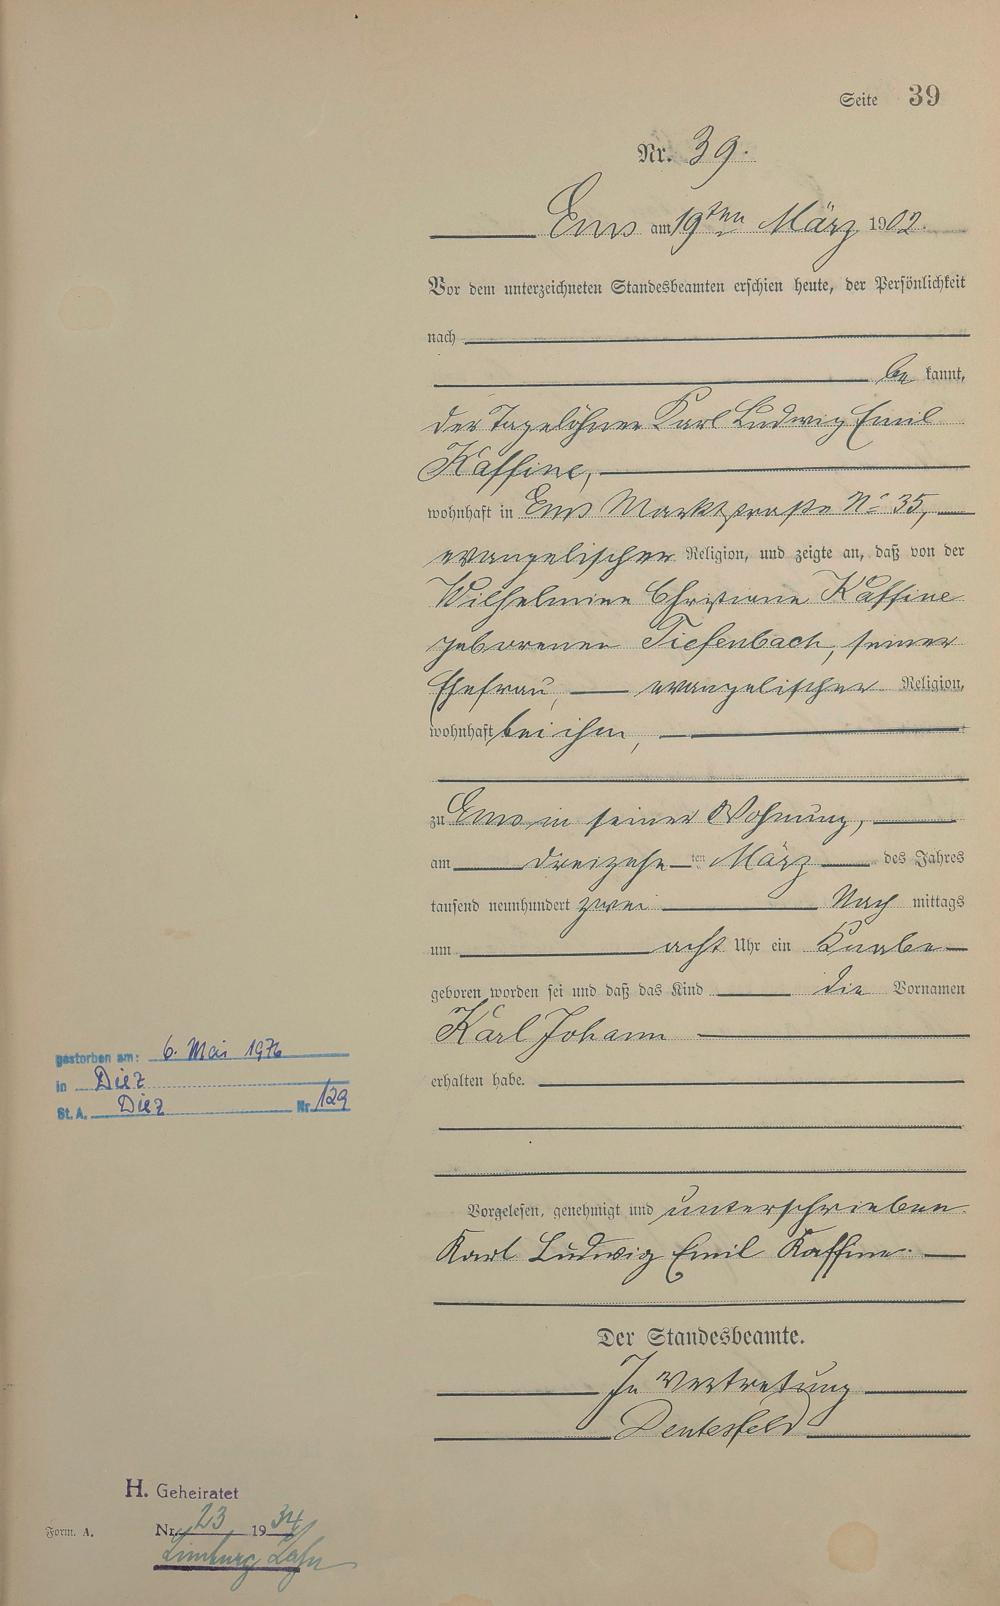 Seite 39
Nr. 39.
Ems am 19ten März 1902.
Vor dem unterzeichneten Standesbeamten erschien heute, der Persönlichkeit
nach
be kannt,
der Tagelöhner Karl Ludwig Emil
Kaffine,
wohnhaft in Ems Marktstraße No 35,
evangelischer Religion, und zeigte an, daß von der
Wilhelmine Christiane Kaffine
geborenen Tiefenbach, seiner
Ehefrau, evangelischer Religion,
wohnhaft bei ihm,
zu Ems in seiner Wohnung,
am dreizehn ten März des Jahres
tausend neunhundert zwei Nach mittags
um acht Uhr ein Knabe
geboren worden sei und daß das Kind die Vornamen
Karl Johann
erhalten habe.
gestorben am: 6. Mai 1976
in Diez
St. A. Diez Nr. 129
Vorgelesen, genehmigt und unterschrieben.
Karl Ludwig Emil Kaffine.
Der Standesbeamte.
In Vertretung
H. Geheiratet
Nr. 23 1934
Limburg Lahn
Form. A.